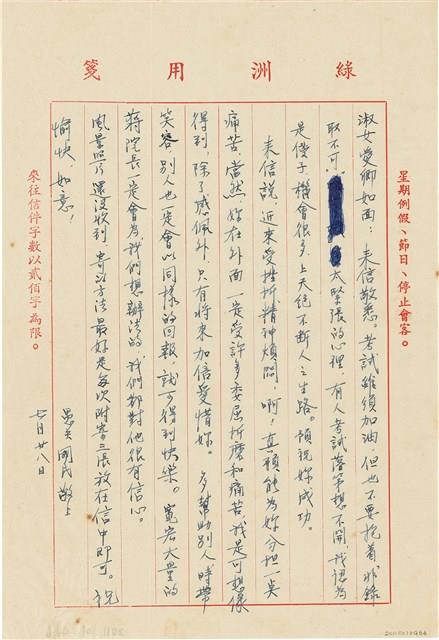 綠洲用箋
星期例假、節日、停止會客。
淑女愛卿如面：来信敬悉。考試雖須加油，但也不要抱着非錄
取不可，太緊張的心裡，有人考試落第想不開，我認為
是傻子，機會很多，上天絕不斷人之生路。預祝妳成功。
来信說，近來受挫折精神煩悶。啊！真願能為妳分担一点
痛苦，當然，妳在外面一定受許多委屈折磨和痛苦，我是可想像
得到，除了感佩外，只有將來加倍愛惜妳。多幫助別人，時帶
笑容，別人也一定會以同樣的回報，就可得到快樂。寬宏大量的
蔣院長一定會為我們想辦法的，我們都對他很有信心。
風景照片還没收到，寄的方法最好是每次附寄三張放在信中即可。祝
愉快，如意！
愚夫國民敬上
七月廿八日
來往信件字數以貳佰字為限。